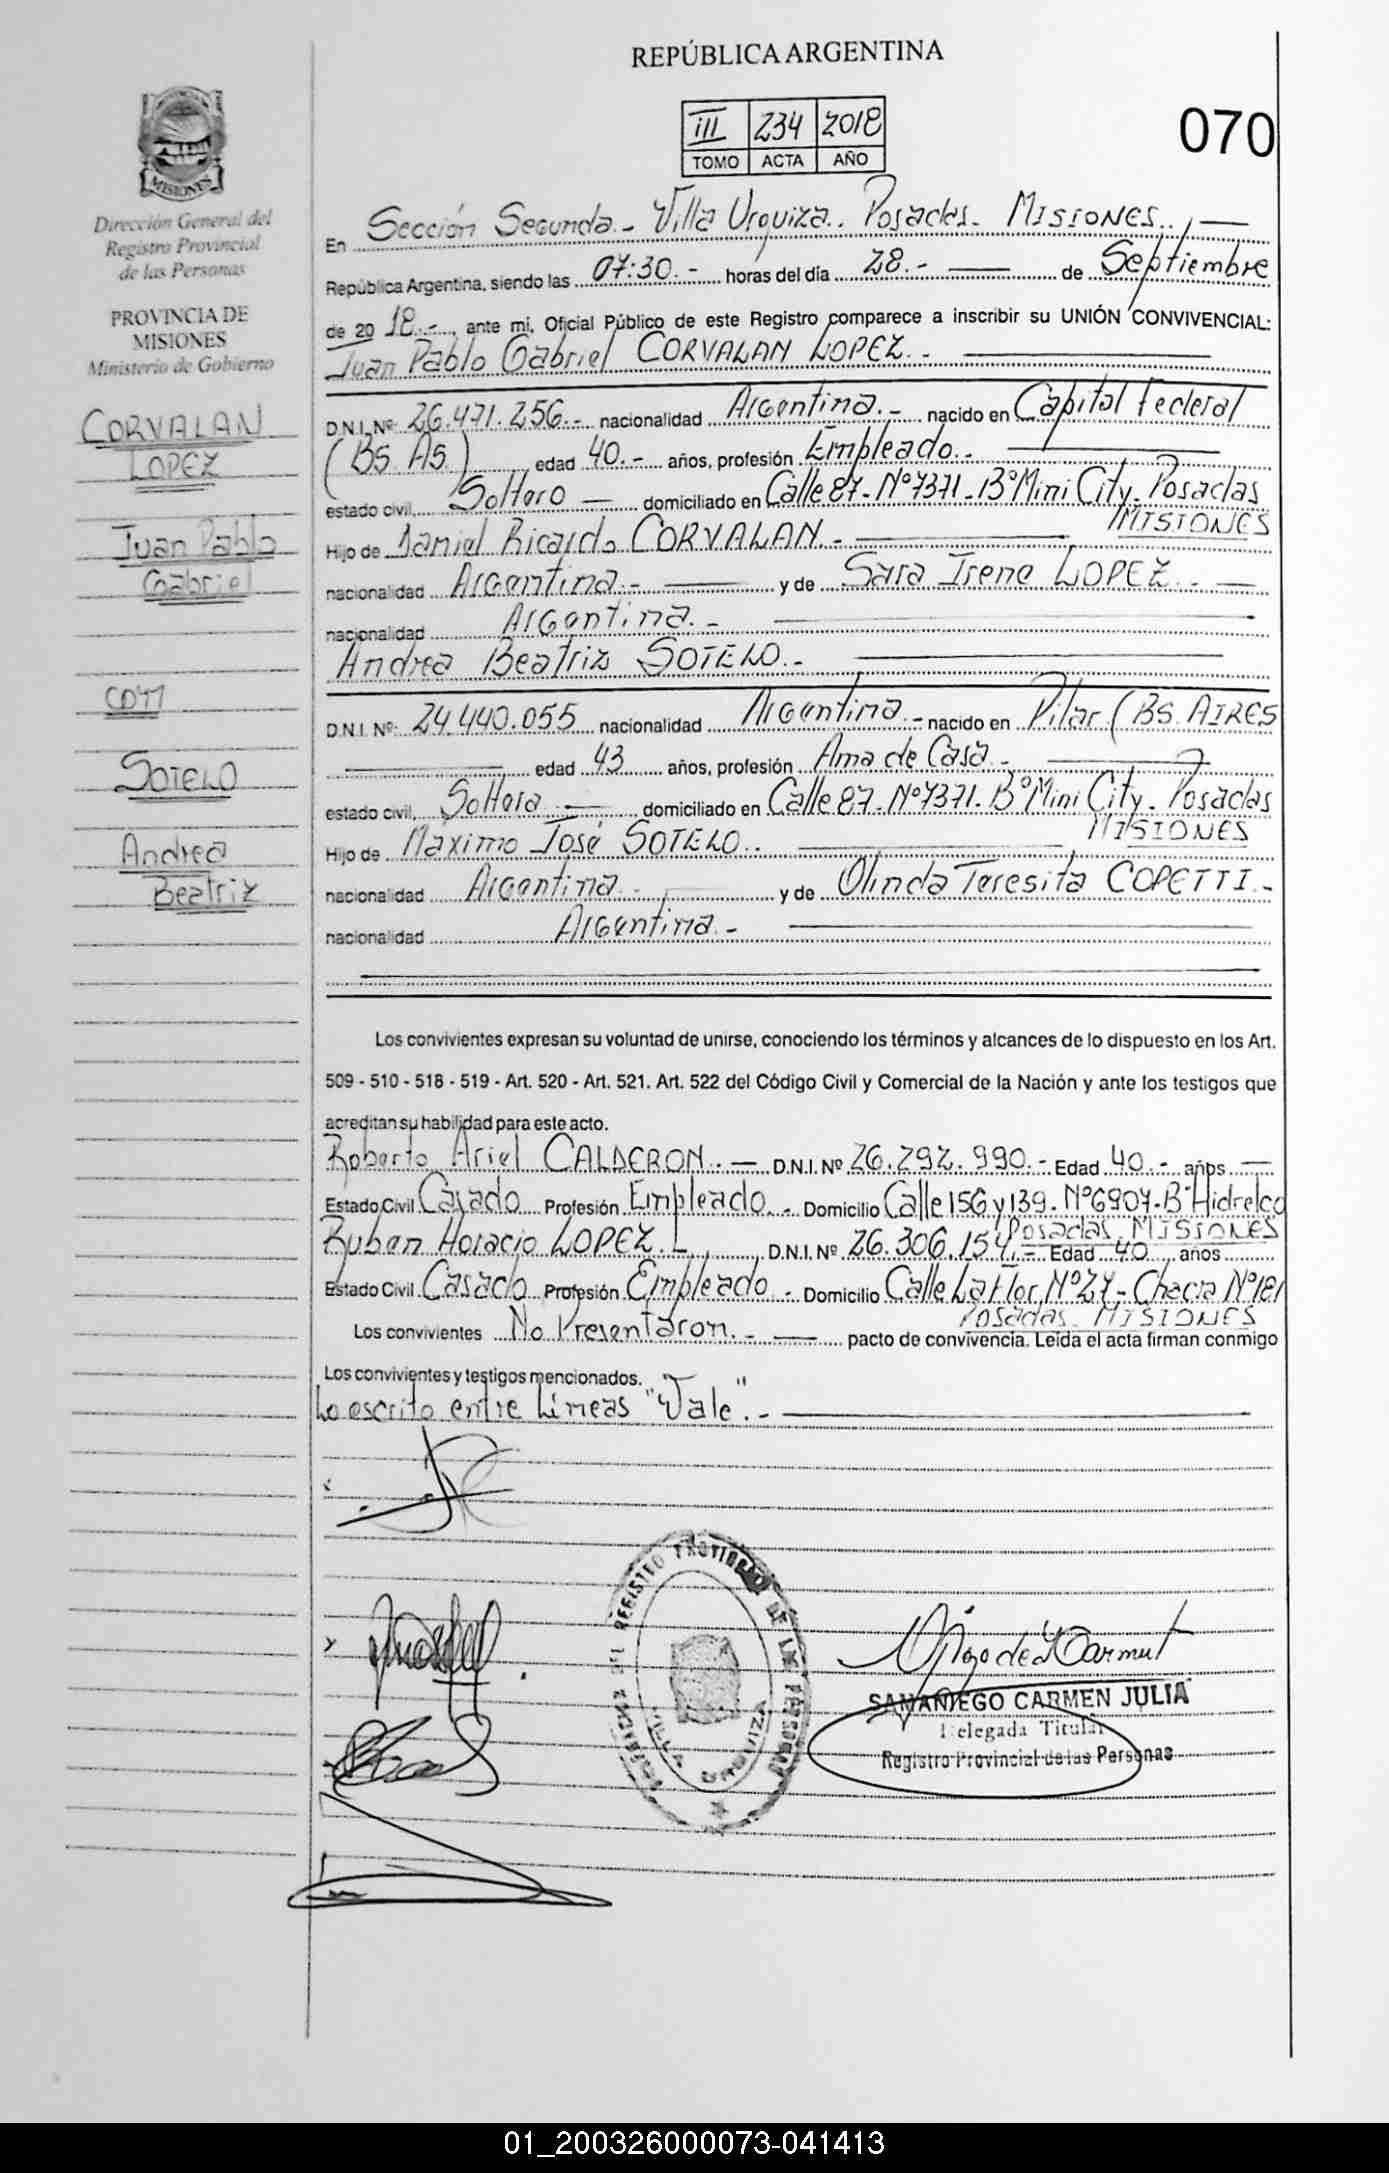 REPÚBLICA ARGENTINA
III 234 2018
TOMO ACTA AÑO
070
MISIONES
Dirección General del
Registro Provincial
de las Personas
PROVINCIA DE
MISIONES
Ministerio de Gobierno
CORVALAN
LOPEZ
Juan Pablo
Gabriel
CON
SOTELO
Andrea
Beatriz
En Sección Segunda.- Villa Urquiza.. Posadas.- MISIONES.,—
República Argentina, siendo las 07:30.- horas del día 28.- — de Septiembre
de 2018.-, ante mi, Oficial Público de este Registro comparece a inscribir su UNIÓN CONVIVENCIAL:
Juan Pablo Gabriel CORVALAN LOPEZ.-
D.N.I. Nº 26.471.256.- nacionalidad Argentina.- nacido en Capital Federal
(Bs. As.) edad 40.- años, profesión Empleado.-
estado civil, Soltero — domiciliado en Calle 87-Nº7371-Bº Mini City. Posadas
MISIONES
Hijo de Daniel Ricardo CORVALAN.-
nacionalidad Argentina.- y de Sara Irene LOPEZ.-
nacionalidad Argentina.-
Andrea Beatriz SOTELO.-
D.N.I. Nº: 24.440.055 nacionalidad Argentina.- nacido en Pilar (BS. AIRES
edad 43 años, profesión Ama de Casa.-
estado civil, Soltera — domiciliado en Calle 87-Nº7371. Bº Mini City. Posadas
MISIONES
Hijo de Máximo José SOTELO..
nacionalidad Argentina.- y de Olinda Teresita COPETTI.-
nacionalidad Argentina.-
Los convivientes expresan su voluntad de unirse, conociendo los términos y alcances de lo dispuesto en los Art.
509 - 510 - 518 - 519 - Art. 520 - Art. 521. Art. 522 del Código Civil y Comercial de la Nación y ante los testigos que
acreditan su habilidad para este acto.
Roberto Ariel CALDERON.- D.N.I. Nº 26.292.990.- Edad 40.- años —
Estado Civil Casado Profesión Empleado.- Domicilio Calle 156 y 139. Nº6907-Bº Hidrelco
Posadas. MISIONES
Ruben Horacio LOPEZ. D.N.I. Nº 26.306.154.- Edad 40 años
Estado Civil Casado Profesión Empleado.- Domicilio Calle La Flor Nº27-Chacra Nº181
Posadas. MISIONES
Los convivientes No Presentaron.- — pacto de convivencia. Leida el acta firman conmigo
Los convivientes y testigos mencionados.
Lo escrito entre Líneas "Vale".-
REGISTRO PROVINCIAL DE LAS PERSONAS
VILLA URQUIZA
SAMANIEGO CARMEN JULIA
Delegada Titular
Registro Provincial de las Personas
01_200326000073-041413